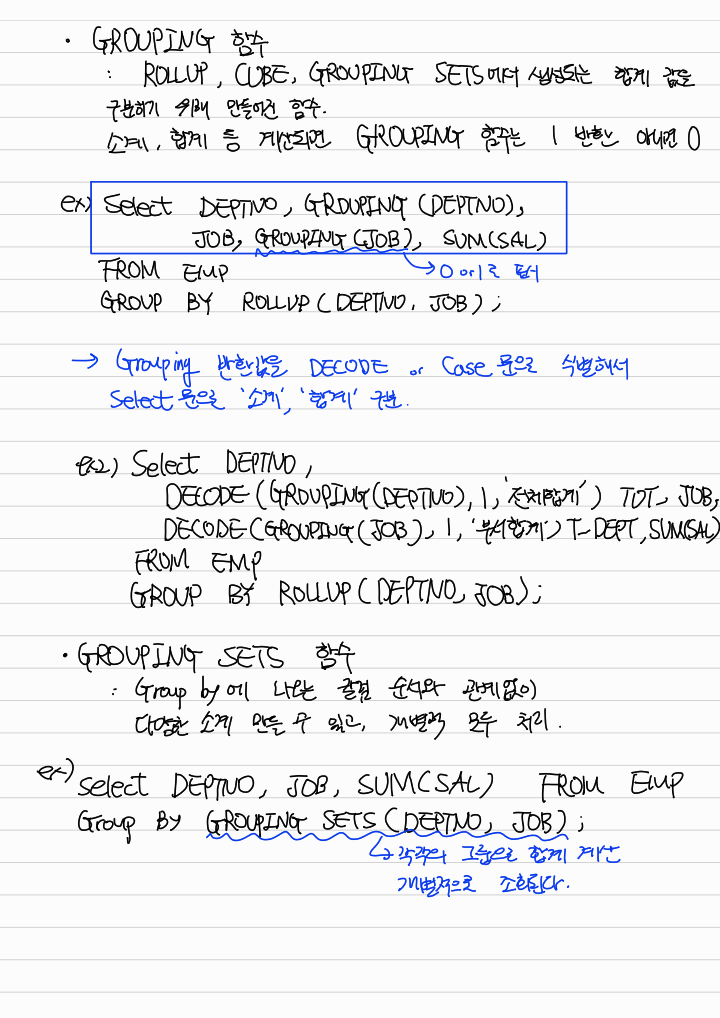 · GROUPING 함수
: ROLLUP, CUBE, GROUPING SETS에서 생성되는 합계 값을
구분하기 위해 만들어진 함수.
소계, 합계 등 계산되면 GROUPING 함수는 1 반환 아니면 0
ex) Select DEPTNO, GROUPING (DEPTNO),
JOB, GROUPING (JOB), SUM(SAL)
FROM EMP
→ 0 or 1로 표시
GROUP BY ROLLUP (DEPTNO, JOB);
→ Grouping 반환값을 DECODE or Case 문으로 식별해서
Select 문으로 '소계', '합계' 구분.
ex2) Select DEPTNO,
DECODE (GROUPING(DEPTNO), 1, '전체합계') TOT, JOB,
DECODE (GROUPING(JOB), 1, '부서합계') T_DEPT, SUM(SAL)
FROM EMP
GROUP BY ROLLUP (DEPTNO, JOB);
· GROUPING SETS 함수
: Group by 에 나오는 순서와 관계없이
다양한 소계 만들 수 있고, 개별적 모두 처리.
ex) Select DEPTNO, JOB, SUM(SAL) FROM EMP
Group By GROUPING SETS (DEPTNO, JOB);
→ 각각의 그룹으로 합계 계산
개별적으로 조회된다.